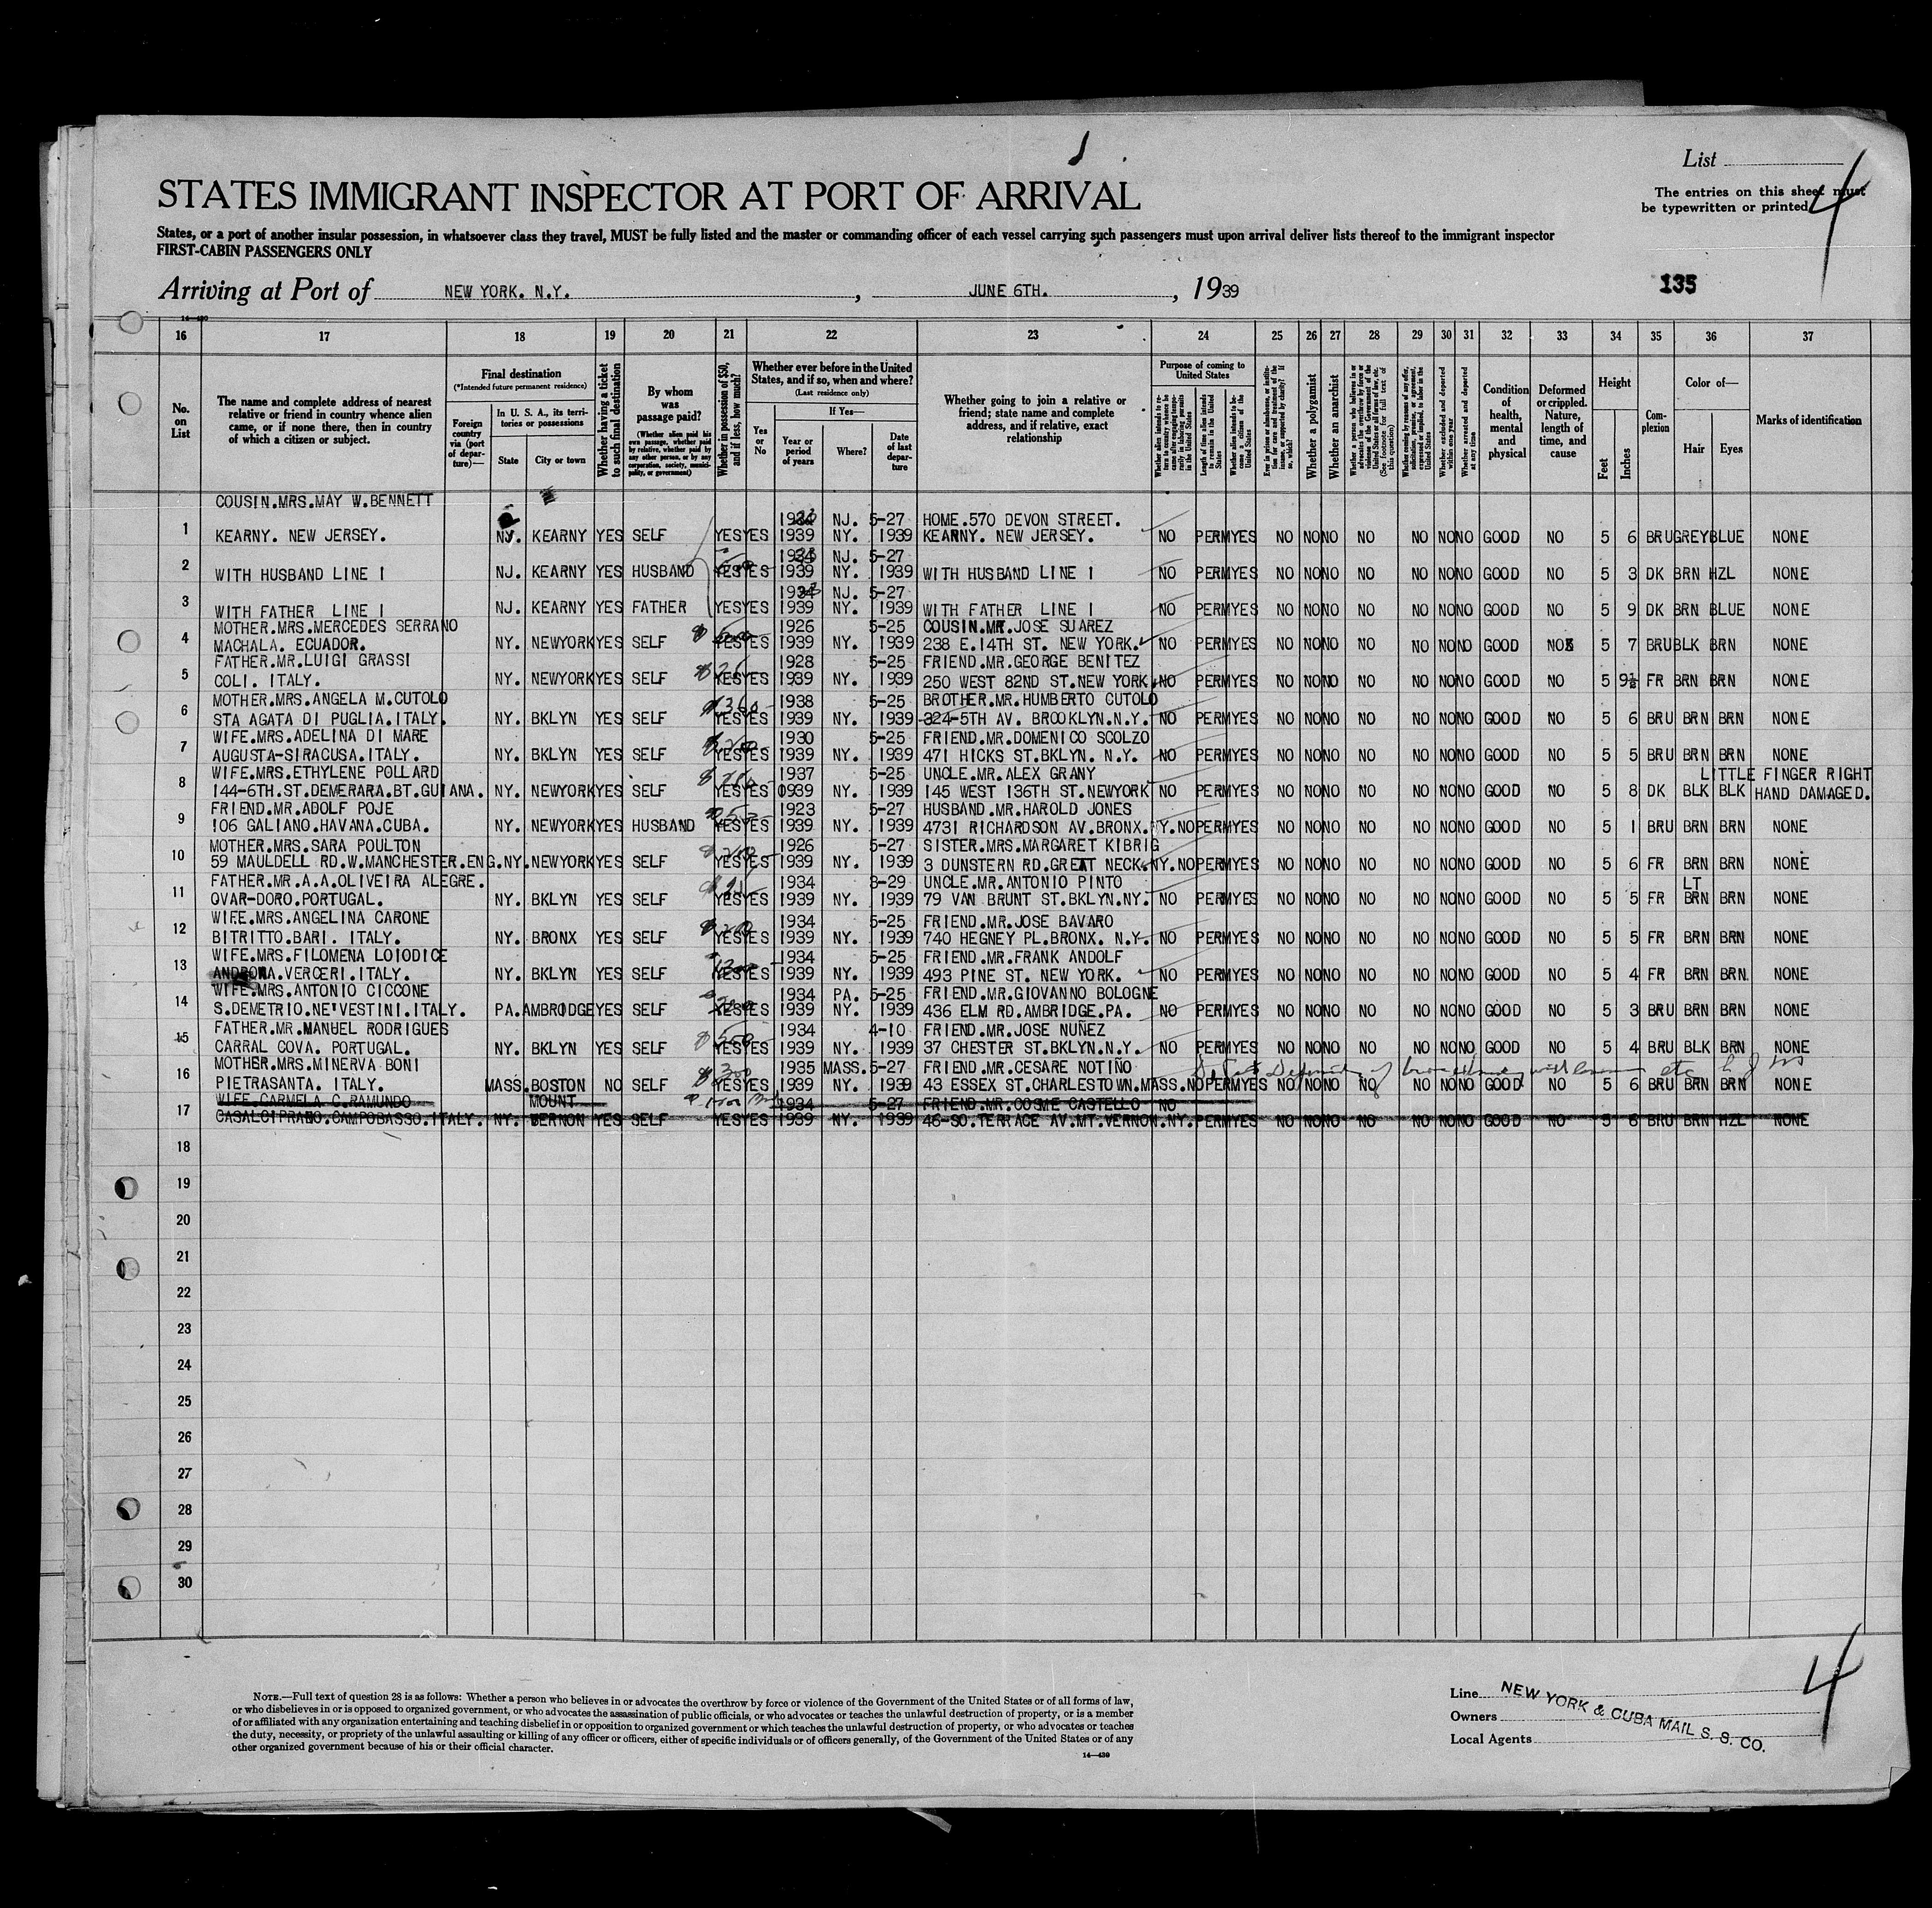 List
4
STATES IMMIGRANT INSPECTOR AT PORT OF ARRIVAL
The entries on this sheet must
be typewritten or printed
States, or a port of another insular possession, in whatsoever class they travel, MUST be fully listed and the master or commanding officer of each vessel carrying such passengers must upon arrival deliver lists thereof to the immigrant inspector
FIRST-CABIN PASSENGERS ONLY
Arriving at Port of NEW YORK. N.Y. , JUNE 6TH. , 1939
135
14—430
16 17 18 19 20 21 22 23 24 25 26 27 28 29 30 31 32 33 34 35 36 37
No. on List
The name and complete address of nearest relative or friend in country whence alien came, or if none there, then in country of which a citizen or subject.
Final destination
(*Intended future permanent residence)
Foreign country via (port of departure)—
In U. S. A., its territories or possessions
State City or town
Whether having a ticket to such final destination
By whom was passage paid?
(Whether alien paid his own passage, whether paid by relative, whether paid by any other person, or by any corporation, society, municipality, or government)
Whether in possession of $50, and if less, how much?
Whether ever before in the United States, and if so, when and where?
(Last residence only)
Yes or No
If Yes—
Year or period of years
Where?
Date of last departure
Whether going to join a relative or friend; state name and complete address, and if relative, exact relationship
Purpose of coming to United States
Length of time alien intends to remain in the United States
Whether alien intends to become a citizen of the United States
Whether a polygamist
Whether an anarchist
Whether excluded and deported within one year
Whether arrested and deported at any time
Condition of health, mental and physical
Deformed or crippled. Nature, length of time, and cause
Height
Feet Inches
Complexion
Color of—
Hair Eyes
Marks of identification
COUSIN.MRS.MAY W.BENNETT
NJ. 5-27 HOME.570 DEVON STREET.
1 KEARNY. NEW JERSEY. NJ. KEARNY YES SELF YES YES 1939 NY. 1939 KEARNY. NEW JERSEY. NO PERM YES NO NO NO NO NO NO NO GOOD NO 5 6 BRU GREY BLUE NONE
NJ. 5-27
2 WITH HUSBAND LINE 1 NJ. KEARNY YES HUSBAND YES YES 1939 NY. 1939 WITH HUSBAND LINE 1 NO PERM YES NO NO NO NO NO NO NO GOOD NO 5 3 DK BRN HZL NONE
NJ. 5-27
3 WITH FATHER LINE 1 NJ. KEARNY YES FATHER YES YES 1939 NY. 1939 WITH FATHER LINE 1 NO PERM YES NO NO NO NO NO NO NO GOOD NO 5 9 DK BRN BLUE NONE
MOTHER.MRS.MERCEDES SERRANO 1926 5-25 COUSIN.MR.JOSE SUAREZ
4 MACHALA. ECUADOR. NY. NEWYORK YES SELF YES YES 1939 NY. 1939 238 E.14TH ST. NEW YORK. NO PERM YES NO NO NO NO NO NO NO GOOD NO 5 7 BRU BLK BRN NONE
FATHER.MR.LUIGI GRASSI 1928 5-25 FRIEND.MR.GEORGE BENITEZ
5 COLI. ITALY. NY. NEWYORK YES SELF YES YES 1939 NY. 1939 250 WEST 82ND ST.NEW YORK NO PERM YES NO NO NO NO NO NO NO GOOD NO 5 9½ FR BRN BRN NONE
MOTHER.MRS.ANGELA M.CUTOLO 1938 5-25 BROTHER.MR.HUMBERTO CUTOLO
6 STA AGATA DI PUGLIA.ITALY. NY. BKLYN YES SELF YES YES 1939 NY. 1939 324-5TH AV. BROOKLYN.N.Y. NO PERM YES NO NO NO NO NO NO NO GOOD NO 5 6 BRU BRN BRN NONE
WIFE.MRS.ADELINA DI MARE 1930 5-25 FRIEND.MR.DOMENICO SCOLZO
7 AUGUSTA-SIRACUSA.ITALY. NY. BKLYN YES SELF YES YES 1939 NY. 1939 471 HICKS ST.BKLYN. N.Y. NO PERM YES NO NO NO NO NO NO NO GOOD NO 5 5 BRU BRN BRN NONE
WIFE.MRS.ETHYLENE POLLARD 1937 5-25 UNCLE.MR.ALEX GRANY LITTLE FINGER RIGHT
8 144-6TH.ST.DEMERARA.BT.GUIANA. NY. NEWYORK YES SELF YES YES 0939 NY. 1939 145 WEST 136TH ST.NEWYORK NO PERM YES NO NO NO NO NO NO NO GOOD NO 5 8 DK BLK BLK HAND DAMAGED.
FRIEND.MR.ADOLF POJE 1923 5-27 HUSBAND.MR.HAROLD JONES
9 106 GALIANO.HAVANA.CUBA. NY. NEWYORK YES HUSBAND YES YES 1939 NY. 1939 4731 RICHARDSON AV.BRONX.NY. NO PERM YES NO NO NO NO NO NO NO GOOD NO 5 1 BRU BRN BRN NONE
MOTHER.MRS.SARA POULTON 1926 5-27 SISTER.MRS.MARGARET KIBRIG
10 59 MAULDELL RD.W.MANCHESTER.ENG. NY. NEWYORK YES SELF YES YES 1939 NY. 1939 3 DUNSTERN RD.GREAT NECK.NY. NO PERM YES NO NO NO NO NO NO NO GOOD NO 5 6 FR BRN BRN NONE
FATHER.MR.A.A.OLIVEIRA ALEGRE. 1934 8-29 UNCLE.MR.ANTONIO PINTO LT
11 OVAR-DORO.PORTUGAL. NY. BKLYN YES SELF YES YES 1939 NY. 1939 79 VAN BRUNT ST.BKLYN.NY. NO PERM YES NO NO NO NO NO NO NO GOOD NO 5 5 FR BRN BRN NONE
WIFE.MRS.ANGELINA CARONE 1934 5-25 FRIEND.MR.JOSE BAVARO
12 BITRITTO.BARI. ITALY. NY. BRONX YES SELF YES YES 1939 NY. 1939 740 HEGNEY PL.BRONX. N.Y. NO PERM YES NO NO NO NO NO NO NO GOOD NO 5 5 FR BRN BRN NONE
WIFE.MRS.FILOMENA LOIODICE 1934 5-25 FRIEND.MR.FRANK ANDOLF
13 VERCERI.ITALY. NY. BKLYN YES SELF YES YES 1939 NY. 1939 493 PINE ST. NEW YORK. NO PERM YES NO NO NO NO NO NO NO GOOD NO 5 4 FR BRN BRN NONE
WIFE.MRS.ANTONIO CICCONE 1934 PA. 5-25 FRIEND.MR.GIOVANNO BOLOGNE
14 S.DEMETRIO.NE'VESTINI.ITALY. PA. AMBRIDGE YES SELF YES YES 1939 NY. 1939 436 ELM RD.AMBRIDGE.PA. NO PERM YES NO NO NO NO NO NO NO GOOD NO 5 3 BRU BRN BRN NONE
FATHER.MR.MANUEL RODRIGUES 1934 4-10 FRIEND.MR.JOSE NUÑEZ
15 CARRAL COVA. PORTUGAL. NY. BKLYN YES SELF YES YES 1939 NY. 1939 37 CHESTER ST.BKLYN.N.Y. NO PERM YES NO NO NO NO NO NO NO GOOD NO 5 4 BRU BLK BRN NONE
MOTHER.MRS.MINERVA BONI 1935 MASS. 5-27 FRIEND.MR.CESARE NOTIÑO
16 PIETRASANTA. ITALY. MASS. BOSTON NO SELF YES YES 1939 NY. 1939 43 ESSEX ST.CHARLESTOWN.MASS. NO PERM YES NO NO NO NO NO NO NO GOOD NO 5 6 BRU BRN BRN NONE
WIFE.CARMELA C.RAMUNDO MOUNT 1934 5-27 FRIEND.MR.COSME CASTELLO NO
17 CASALCIPRANO.CAMPOBASSO.ITALY. NY. VERNON YES SELF YES YES 1939 NY. 1939 46-SO.TERRACE AV.MT.VERNON.NY. PERM YES NO NO NO NO NO NO NO GOOD NO 5 6 BRU BRN HZL NONE
18
19
20
21
22
23
24
25
26
27
28
29
30
NOTE.—Full text of question 28 is as follows: Whether a person who believes in or advocates the overthrow by force or violence of the Government of the United States or of all forms of law,
or who disbelieves in or is opposed to organized government, or who advocates the assassination of public officials, or who advocates or teaches the unlawful destruction of property, or is a member
of or affiliated with any organization entertaining and teaching disbelief in or opposition to organized government or which teaches the unlawful destruction of property, or who advocates or teaches
the duty, necessity, or propriety of the unlawful assaulting or killing of any officer or officers, either of specific individuals or of officers generally, of the Government of the United States or of any
other organized government because of his or their official character.
14—430
Line
Owners
Local Agents
NEW YORK & CUBA MAIL S. S. CO.
4